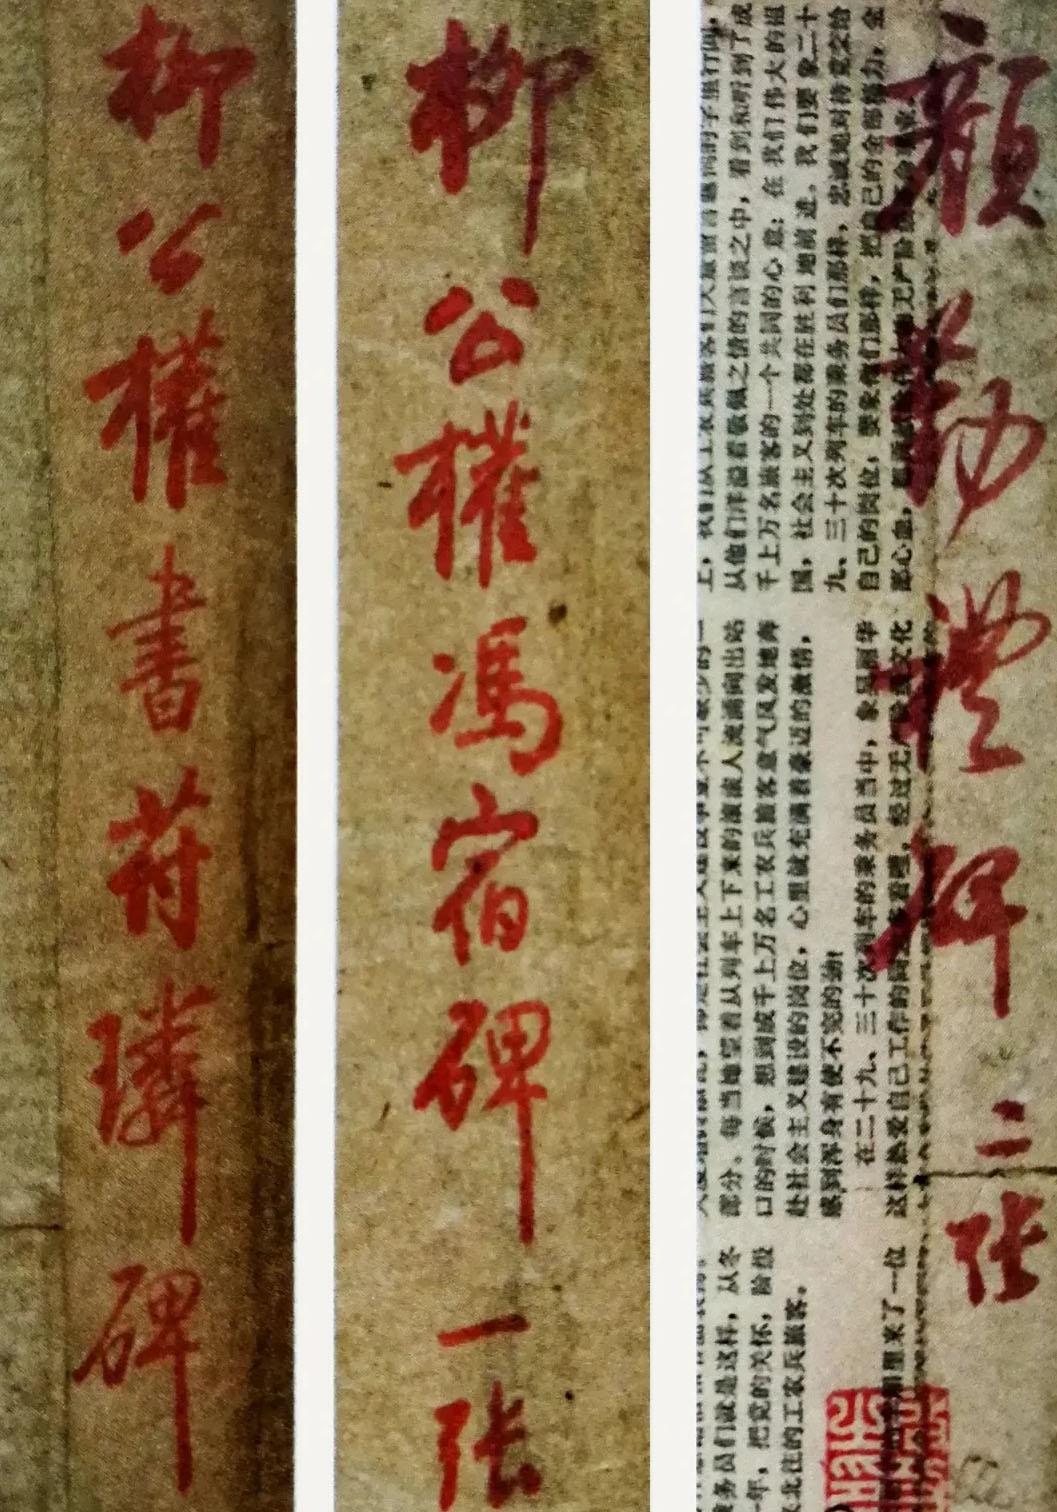 柳公權書苻璘碑
柳公權馮宿碑 一张
顏勤禮碑 二张
务员们就是这样，从冬
一年，把党的关怀，阶级
北往的工农兵旅客。
厢里来了一位
部分。每当她望着从列车上下来的滚滚人流涌向出站
口的时候，想到成千上万名工农兵旅客意气风发地奔
赴社会主义建设的岗位，心里就充满着豪迈的激情，
感到浑身有使不完的劲！
在二十九、三十次列车的乘务员当中，象吴丽华
这样热爱自己工作的同志多着哩。经过无产阶级文化
上，我们从工农兵旅客们
从他们洋溢着敬佩之情的言谈之中，看到和听到了成
千上万名旅客的一个共同的心意：在我们伟大的祖
国，社会主义到处都在胜利地前进。我们要象二十
九、三十次列车的乘务员们那样，忠诚地对待党交给
自己的岗位，要象他们那样，把自己的全部精力，全
部心血，